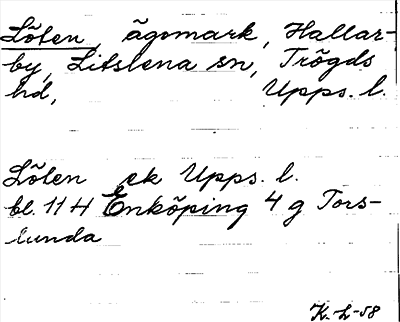 Lõten, ägomark, Hallar-
by, Litslena sn, Trögds
hd, Upps. l.
Lõten ek Upps. l.
bl. 11 H Enköping 4 g Tors-
lunda
K.-L-58